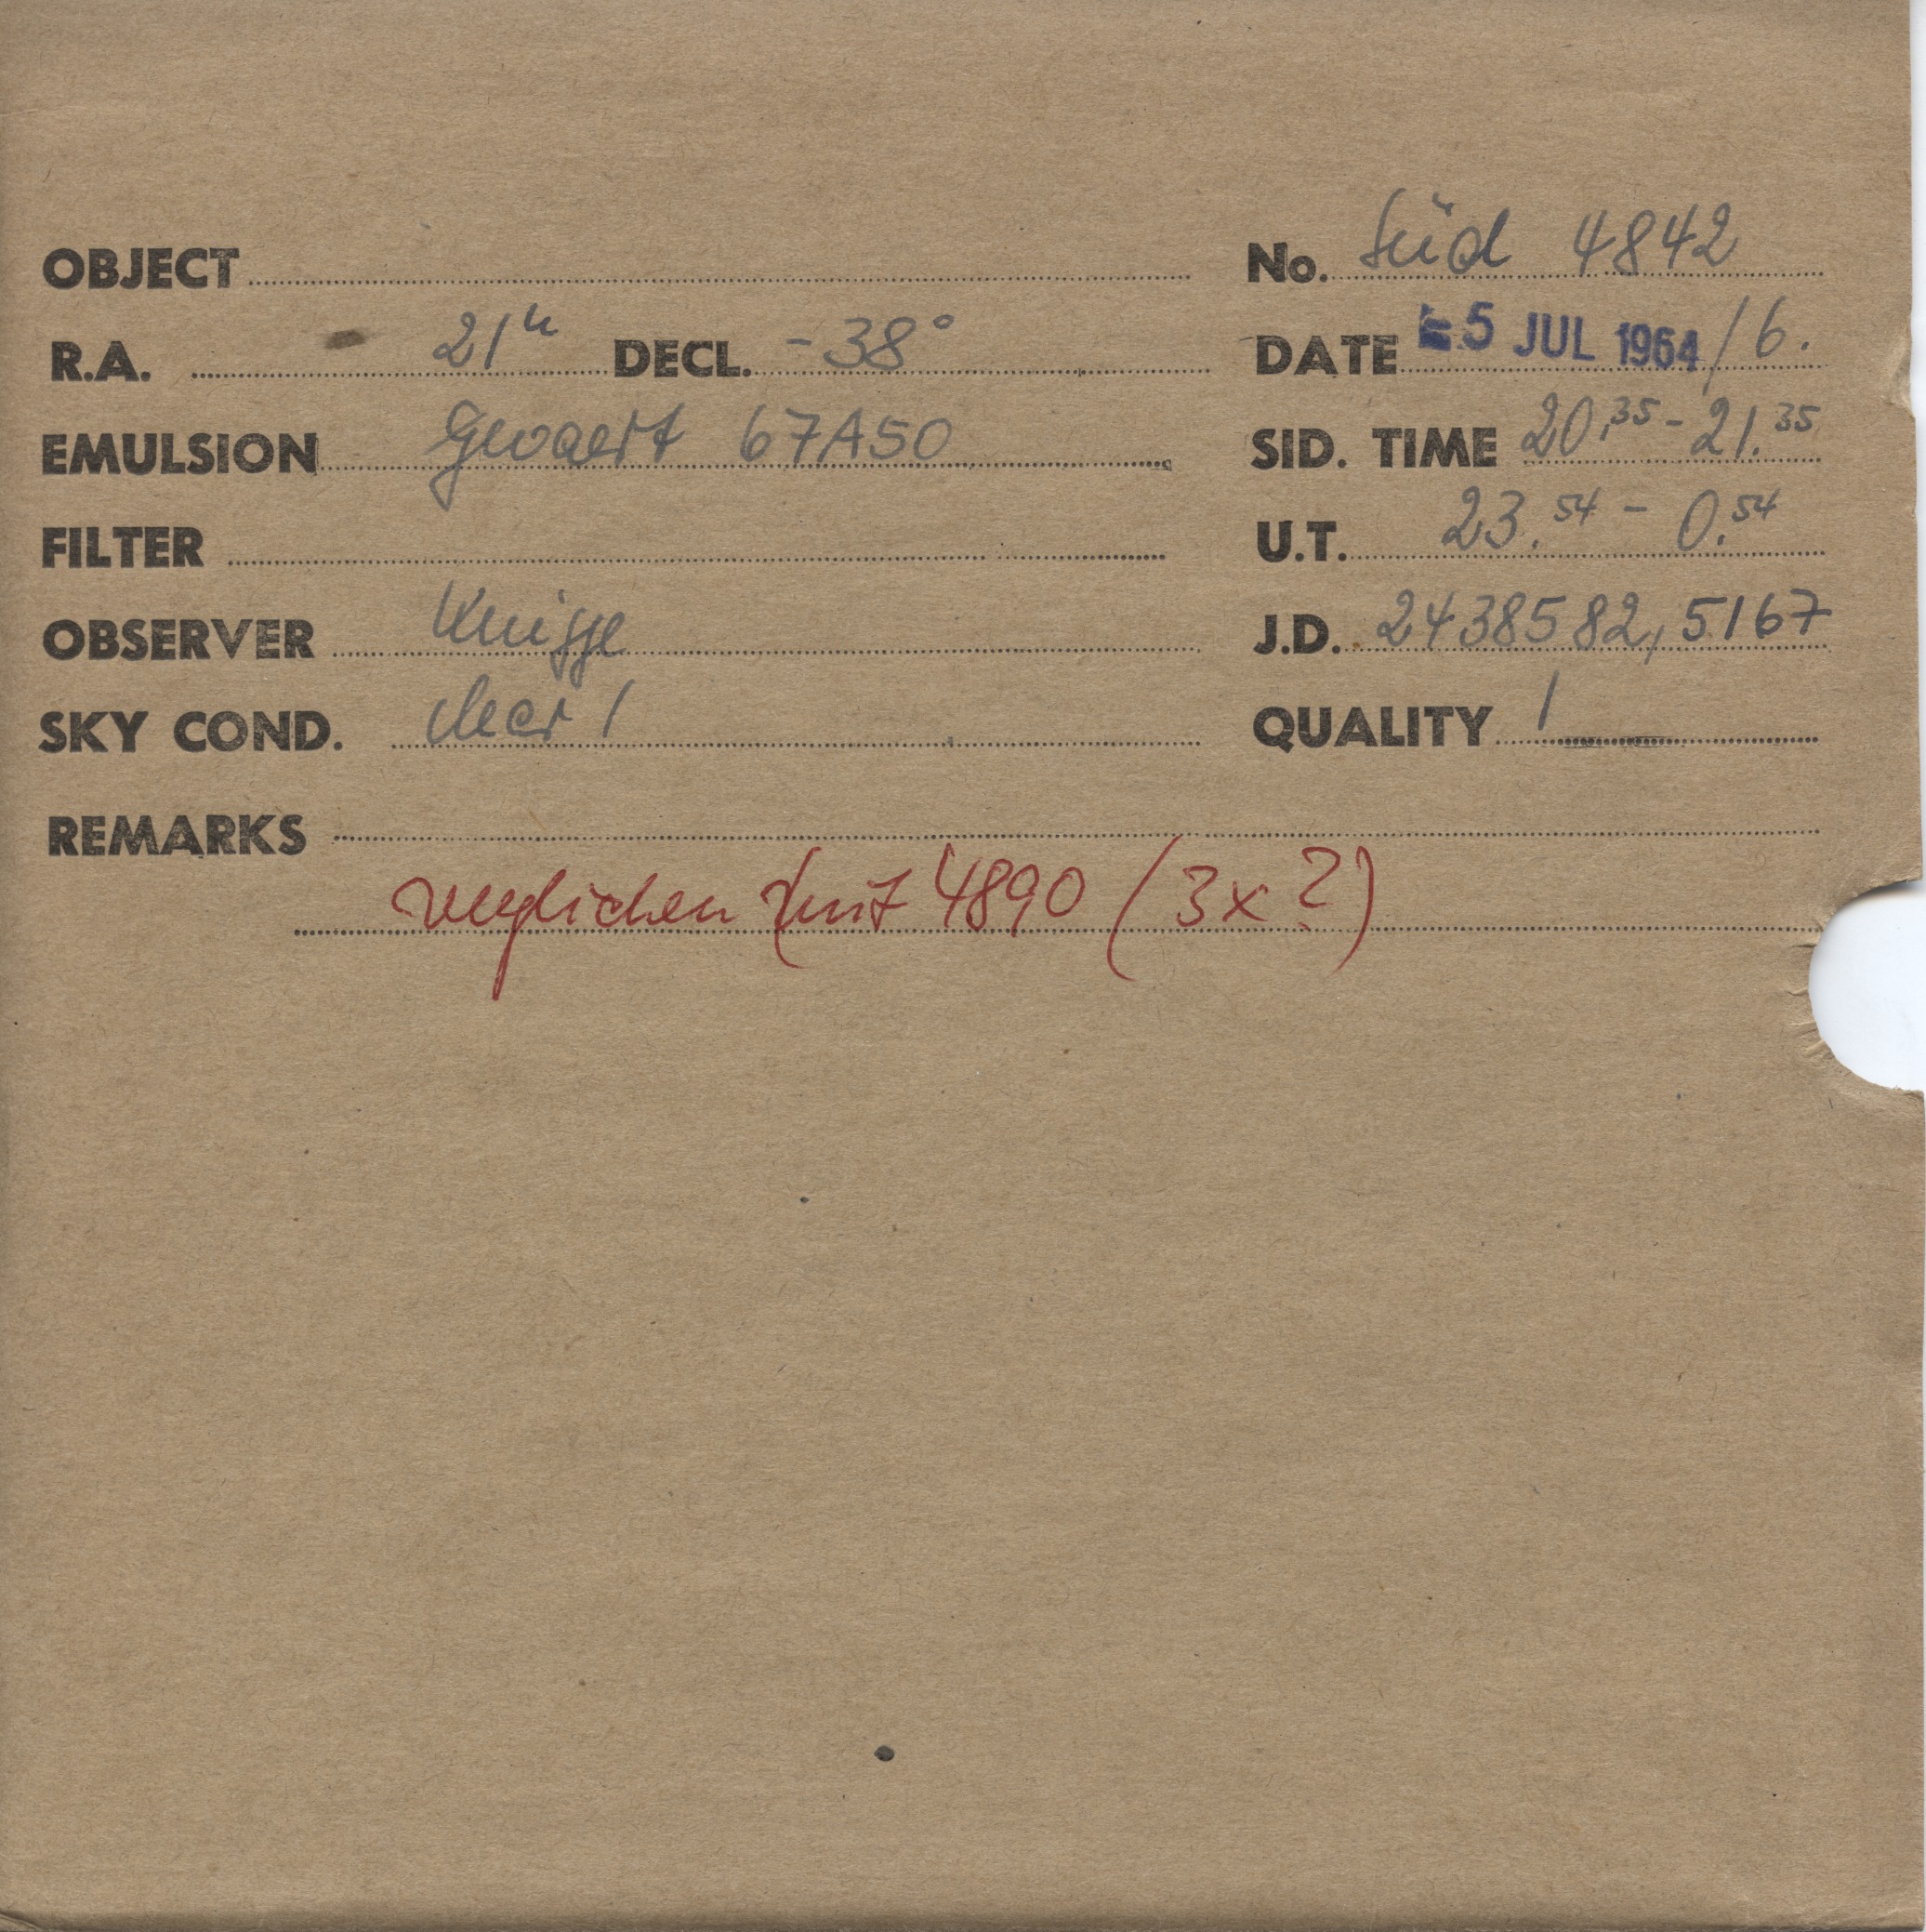 OBJECT No. Süd 4842
R.A. 21h DECL. -38° DATE -5 JUL 1964/6.
EMULSION Gevaert 67A50 SID. TIME 20.35 - 21.35
FILTER U.T. 23.54 - 0.54
OBSERVER Knigge J.D. 2438582,5167
SKY COND. clear 1 QUALITY 1
REMARKS
verglichen mit 4890 (3x?)